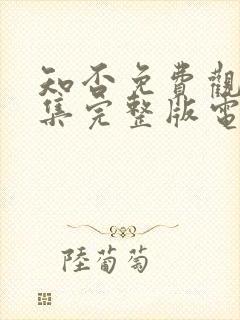 知否免費觀
集完整版電
陸葡萄